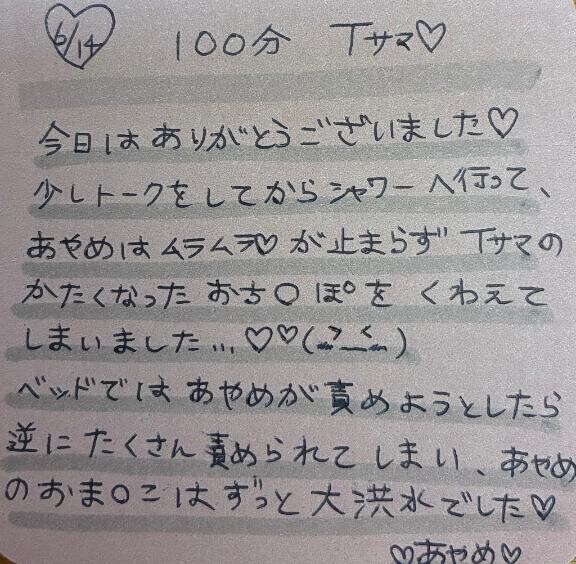 6/14 100分 Tサマ♡
今日はありがとうございました♡
少しトークをしてからシャワーへ行って、
あやめはムラムラ♡が止まらずTサマの
かたくなったおち〇ぽをくわえて
しまいました...♡♡(>_<)
ベッドではあやめが責めようとしたら
逆にたくさん責められてしまい、あやめ
のおま〇こはずっと大洪水でした♡
♡あやめ♡